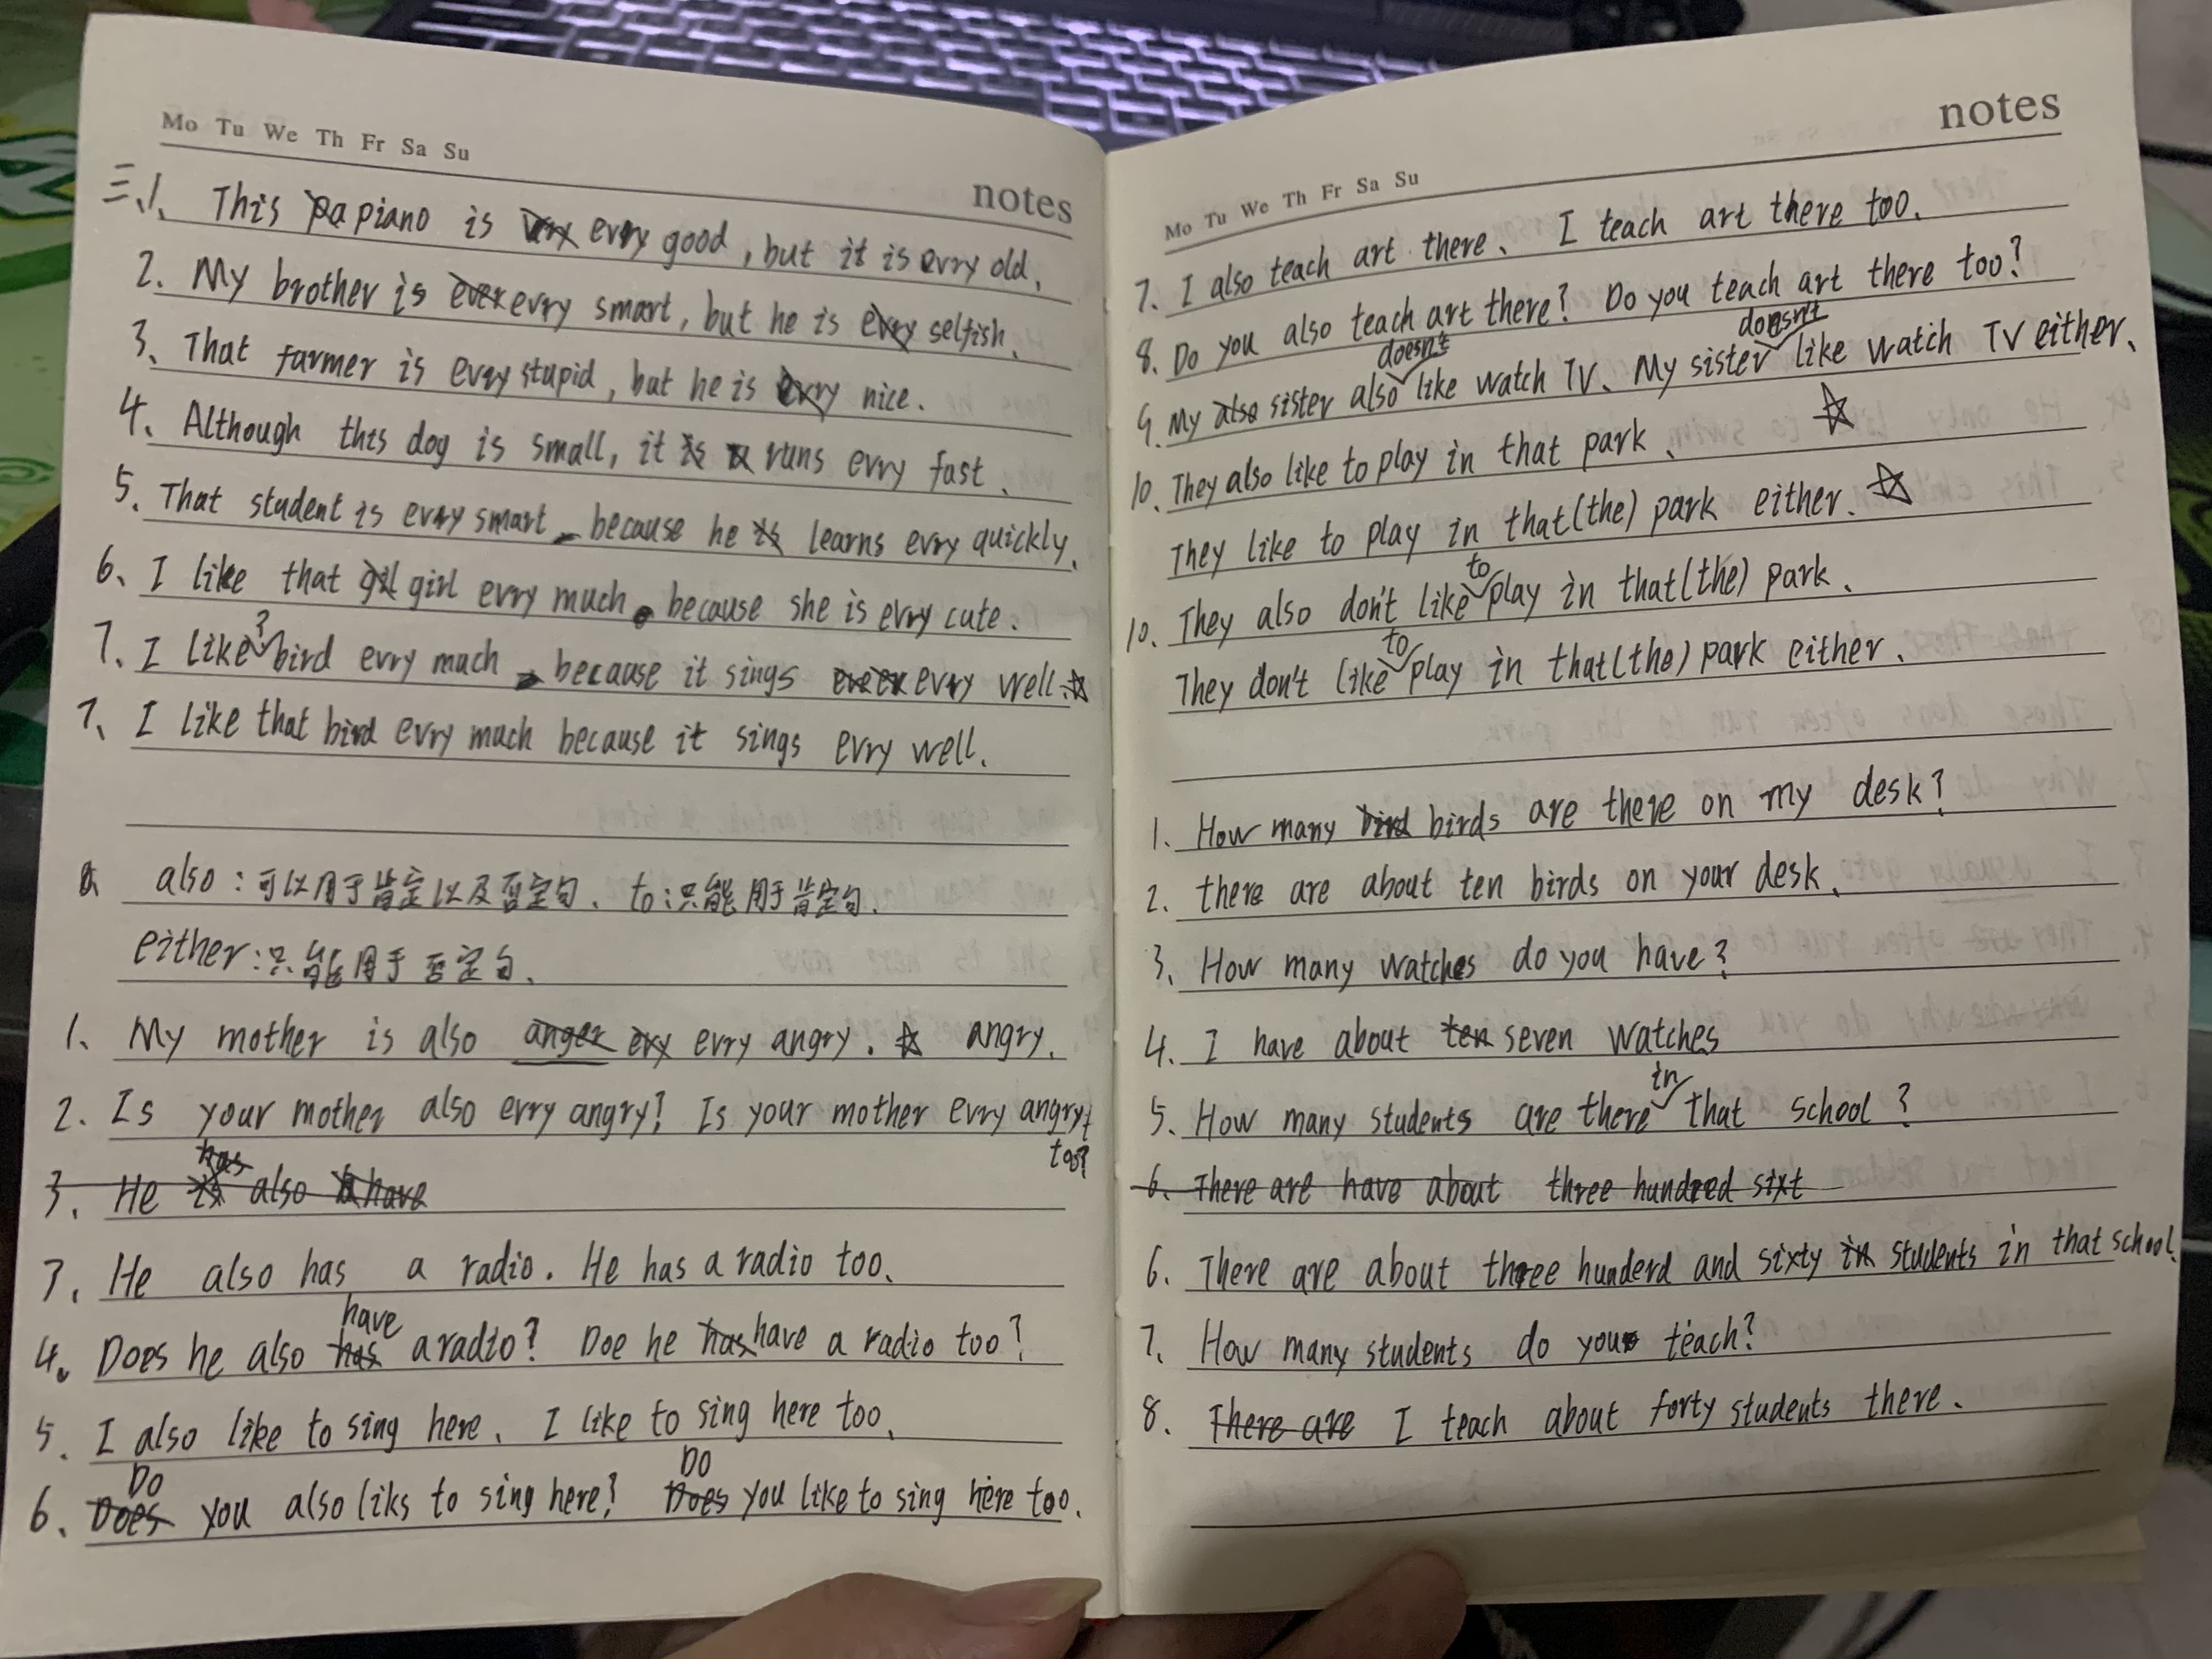 Mo Tu We Th Fr Sa Su
notes
三.1. This piano is evry good, but it is evry old.
2. My brother is evry smart, but he is selfish.
3. That farmer is evry stupid, but he is nice.
4. Although this dog is small, it runs evry fast.
5. That student is evry smart because he learns evry quickly.
6. I like that girl evry much because she is evry cute.
7. I like ? bird evry much because it sings evry well.☆
7. I like that bird evry much because it sings evry well.
also:可以用于肯定以及否定句. to:只能用于肯定句.
either:只能用于否定句.
1. My mother is also evry angry. ☆ angry.
2. Is your mother also evry angry? Is your mother evry angry
too?
3. He has also have
3. He also has a radio. He has a radio too.
4. Does he also have a radio? Doe he have a radio too?
5. I also like to sing here. I like to sing here too.
6. Do you also liks to sing here? Do you like to sing here too.
Mo Tu We Th Fr Sa Su
notes
7. I also teach art there. I teach art there too.
8. Do you also teach art there? Do you teach art there too?
9. My sister also doesn't like watch TV. My sister doesn't like watch TV either.
10. They also like to play in that park. ☆
They like to play in that(the) park either. ☆
10. They also don't like to play in that(the) park.
They don't like to play in that(the) park either.
1. How many birds are there on my desk?
2. there are about ten birds on your desk.
3. How many watches do you have?
4. I have about seven watches
5. How many students are there in that school?
6. There are have about three hundred sixt
6. There are about three hunderd and sixty students in that school.
7. How many students do you teach?
8. I teach about forty students there.